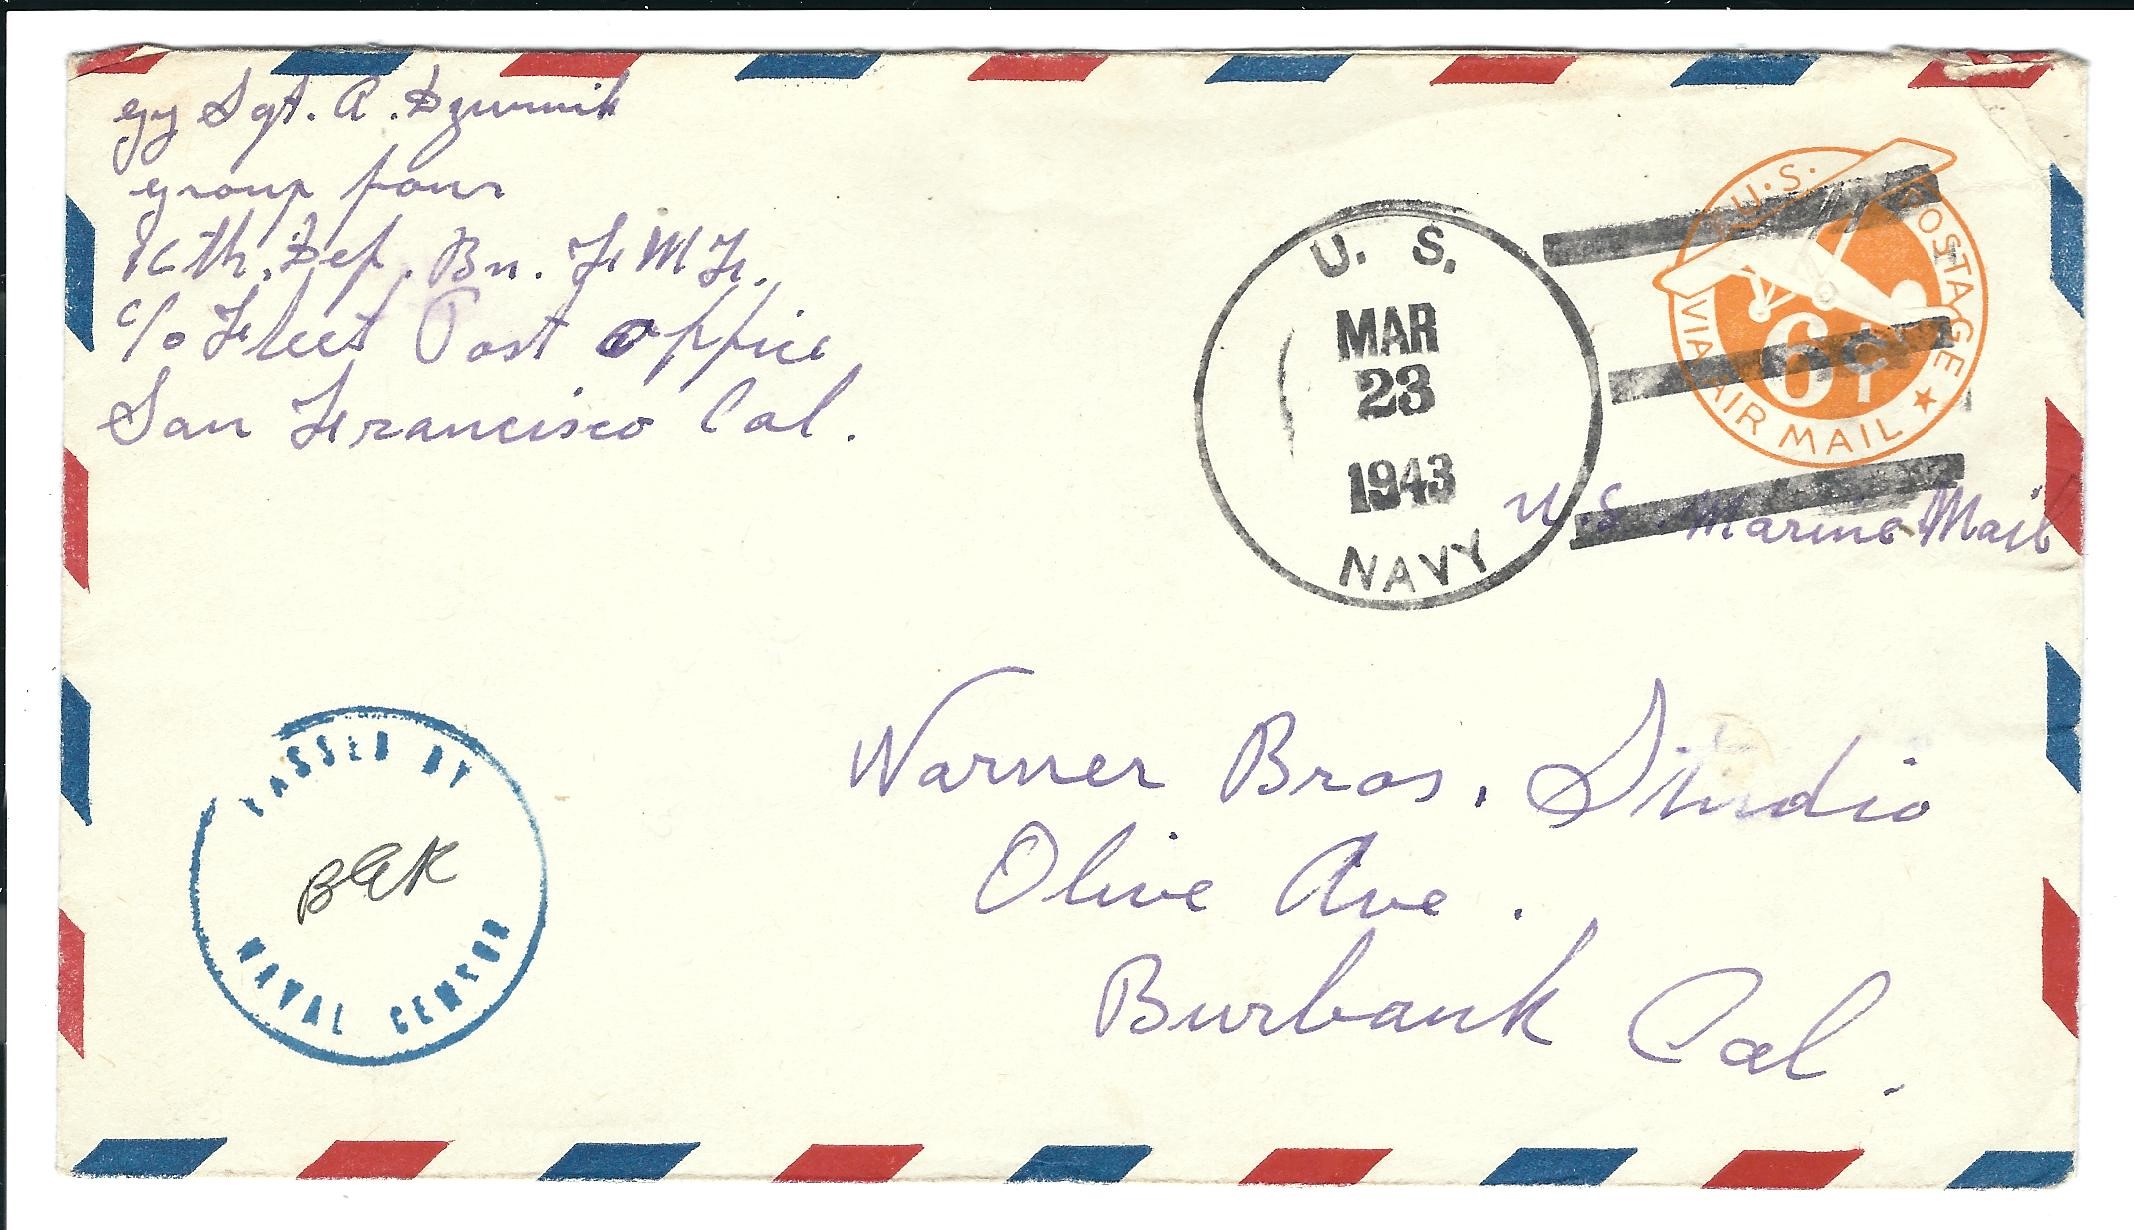 Gy Sgt. A. Dzurnik
Group four
16th. Def. Bn. F.M.F.
c/o Fleet Post Office
San Francisco Cal.
U. S.
MAR
23
1943
NAVY
U.S. POSTAGE
6¢
VIA AIR MAIL
U.S. Marine Mail
Warner Bros. Studio
Olive Ave.
Burbank Cal.
PASSED BY
NAVAL CENSOR